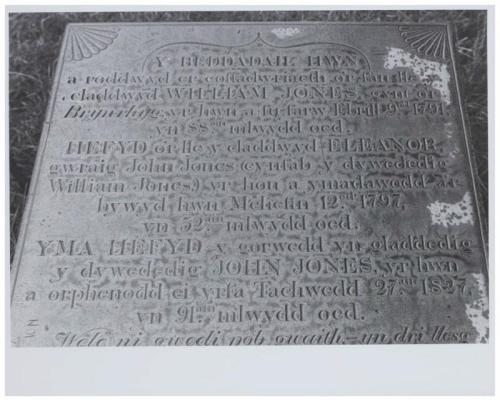 Y BEDDADAIL HWN
a roddwyd er coffadwriaeth o'r fan lle
claddwyd WILLIAM JONES, gynt o'r
Brynrhyg, yr hwn a fu farw Ebrill 9ned 1791,
yn 88ain mlwydd oed.
HEFYD o'r lle y claddwyd ELLEANOR,
gwraig John Jones (cynfab y dywededig
William Jones,) yr hon a ymadawodd a'r
bywyd hwn Mehefin 12fed 1797,
yn 52ain mlwydd oed.
YMA HEFYD y gorwedd yn gladdedig
y dywededig JOHN JONES, yr hwn
a orphenodd ei yrfa Tachwedd 27ain 1827,
yn 91ain mlwydd oed.
Wele ni gwedi pob gwaith,—yn dri llesg